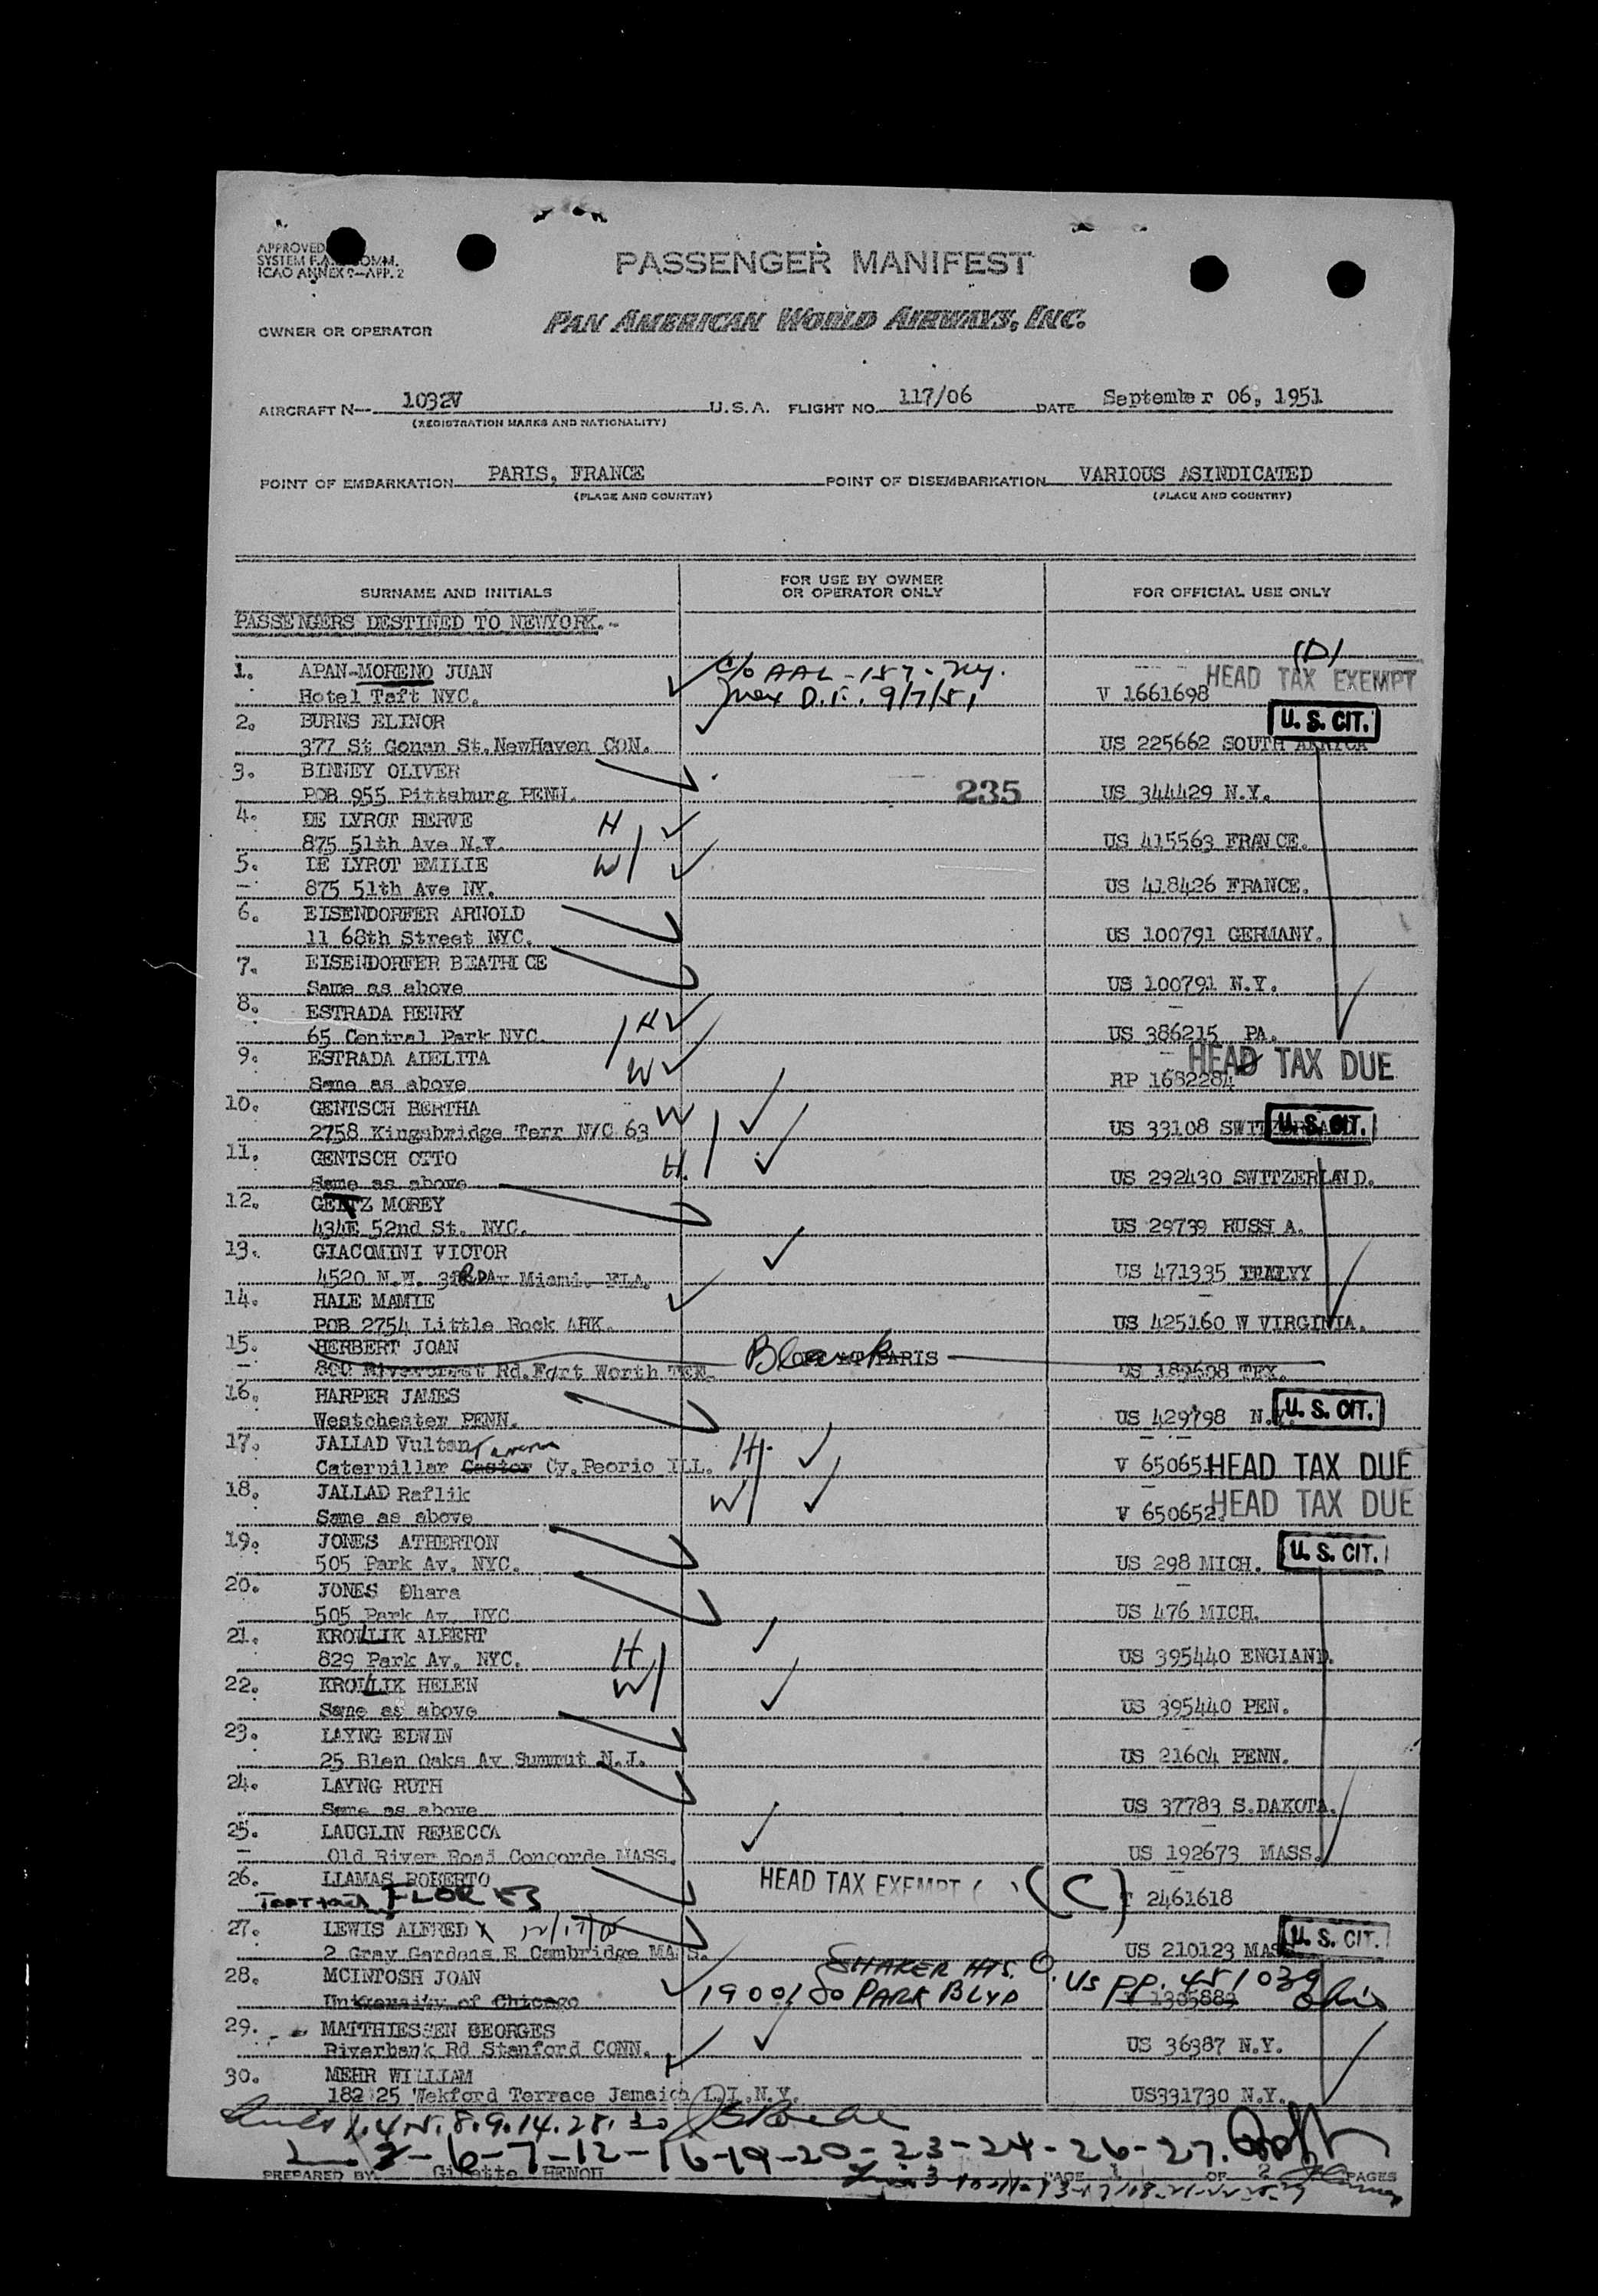 PASSENGER MANIFEST
PAN AMERICAN WORLD AIRWAYS, INC.
APPROVED
SYSTEM F.A. COMM.
ICAO ANNEX 9—APP. 2
OWNER OR OPERATOR
AIRCRAFT N— 1032V U.S.A. FLIGHT NO. 117/06 DATE September 06, 1951
(REGISTRATION MARKS AND NATIONALITY)
POINT OF EMBARKATION PARIS, FRANCE POINT OF DISEMBARKATION VARIOUS ASINDICATED
(PLACE AND COUNTRY) (PLACE AND COUNTRY)
SURNAME AND INITIALS FOR USE BY OWNER OR OPERATOR ONLY FOR OFFICIAL USE ONLY
PASSENGERS DESTINED TO NEWYORK.-
(D)
1. APAN-MORENO JUAN c/o AAL-157- HEAD TAX EXEMPT
Hotel Taft NYC. Mex D.F. 9/7/51 V 1661698
2. BURNS ELINOR U. S. CIT.
377 St Gonan St. NewHaven CON. US 225662 SOUTH AFRICA
3. BINNEY OLIVER
POB 955 Pittsburg PENN. 235 US 344429 N.Y.
4. DE LYROT HERVE H
875 51th Ave N.Y. US 415563 FRANCE.
5. DE LYROT EMILIE W
875 51th Ave NY. US 418426 FRANCE.
6. EISENDORFER ARNOLD
11 68th Street NYC. US 100791 GERMANY.
7. EISENDORFER BEATRICE
Same as above US 100791 N.Y.
8. ESTRADA HENRY H
65 Central Park NYC. US 386215 PA.
9. ESTRADA ADELITA W HEAD TAX DUE
Same as above RP 1682284
10. GENTSCH BERTHA W U. S. CIT.
2758 Kingsbridge Terr NYC 63 US 33108 SWITZERLAND.
11. GENTSCH OTTO H.
Same as above US 292430 SWITZERLAND.
12. GETTZ MOREY
434E 52nd St. NYC. US 29739 RUSSIA.
13. GIACOMINI VICTOR
4520 N.W. 3RD Av Miami. FLA. US 471335 ITALY
14. HALE MAMIE
POB 2754 Little Rock ARK. US 425160 W VIRGINIA.
15. HERBERT JOAN Blank PARIS
800 Rivercrest Rd. Fort Worth TEX. US 189698 TEX.
16. HARPER JAMES U. S. CIT.
Westchester PENN. US 429798 N.Y.
17. JALLAD Vultan H.
Caterpillar Castor Tractor Cy. Peorio ILL. V 650651 HEAD TAX DUE
18. JALLAD Raflik W
Same as above V 650652 HEAD TAX DUE
19. JONES ATHERTON U. S. CIT.
505 Park Av. NYC. US 298 MICH.
20. JONES Dhara
505 Park Av. NYC US 476 MICH.
21. KROLLIK ALBERT H
829 Park Av. NYC. US 395440 ENGLAND.
22. KROLLIK HELEN W
Same as above US 395440 PEN.
23. LAYNG EDWIN
25 Blen Oaks Av Summut N.J. US 21604 PENN.
24. LAYNG RUTH
Same as above US 37783 S.DAKOTA.
25. LAUGLIN REBECCA
Old River Road Concorde MASS. US 192673 MASS.
26. LLAMAS ROBERTO HEAD TAX EXEMPT ( ) (C)
FLORES 2461618
27. LEWIS ALFRED U. S. CIT.
2 Gray Gardens E Cambridge MASS. US 210123 MASS
28. MCINTOSH JOAN SHAKER HTS. O. US PP. 451039
University of Chicago 19001 So PARK BLVD 1305883 Ohio
29. MATTHIESSEN GEORGES
Riverbank Rd Stanford CONN. US 36387 N.Y.
30. MEHR WILLIAM
182 25 Wekford Terrace Jamaica L.I. N.Y. US331730 N.Y.
1.4.5.8.9.14.28.30
2-6-7-12-16-19-20-23-24-26-27.
PREPARED BY Ginette HENOU PAGE 1 OF 2 PAGES